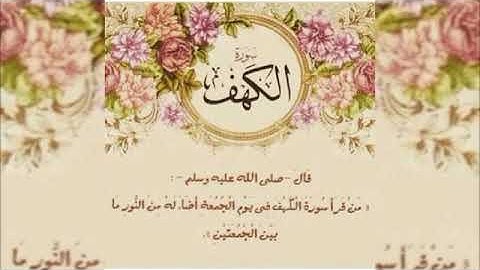 سورة
الكهف
قال - صلى الله عليه وسلم - :
« مَنْ قَرَأَ سُورَةَ الْكَهْفِ فِى يَوْمِ الْجُمُعَةِ أضَاءَ لَهُ مِنَ النُّورِ مَا
بَيْنَ الْجُمُعَتَيْنِ ».
مِنَ النُّورِ مَا
« مَنْ قَرَأَ سُو